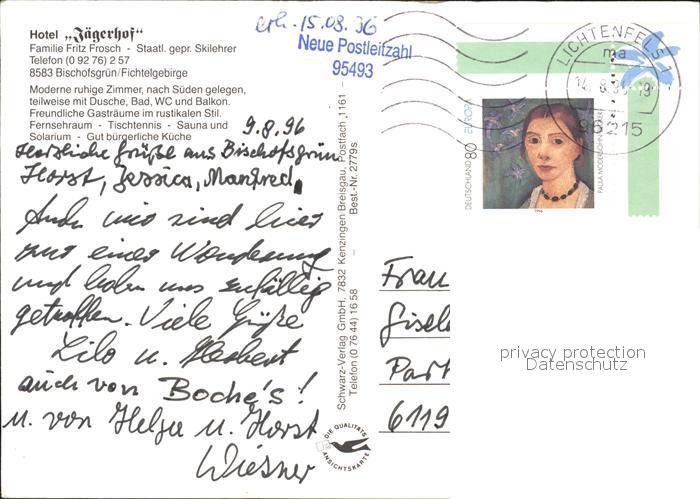 Hotel „Jägerhof“
Familie Fritz Frosch - Staatl. gepr. Skilehrer
Telefon (0 92 76) 2 57
8583 Bischofsgrün/Fichtelgebirge
Moderne ruhige Zimmer, nach Süden gelegen,
teilweise mit Dusche, Bad, WC und Balkon.
Freundliche Gasträume im rustikalen Stil.
Fernsehraum - Tischtennis - Sauna und
Solarium - Gut bürgerliche Küche
erh. 15.08.96
Neue Postleitzahl
95493
9.8.96
Herzliche Grüße aus Bischofsgrün
Horst, Jessica, Manfred,
Auch wir sind hier
zur einer Wanderung
und haben uns zufällig
getroffen. Viele Grüße
Lilo u. Herbert
auch von Boche's!
u. von Helga u. Horst
Wiesner
Schwarz-Verlag GmbH, 7832 Kenzingen Breisgau, Postfach 1161 -
Telefon (0 76 44) 16 58 - Best.-Nr. 2779s
DIE QUALITÄTS
ANSICHTSKARTE
LICHTENFELS 1
ma
96215
DEUTSCHLAND 80 EUROPA
1996
Frau
Gisel
Post
6119
privacy protection
Datenschutz